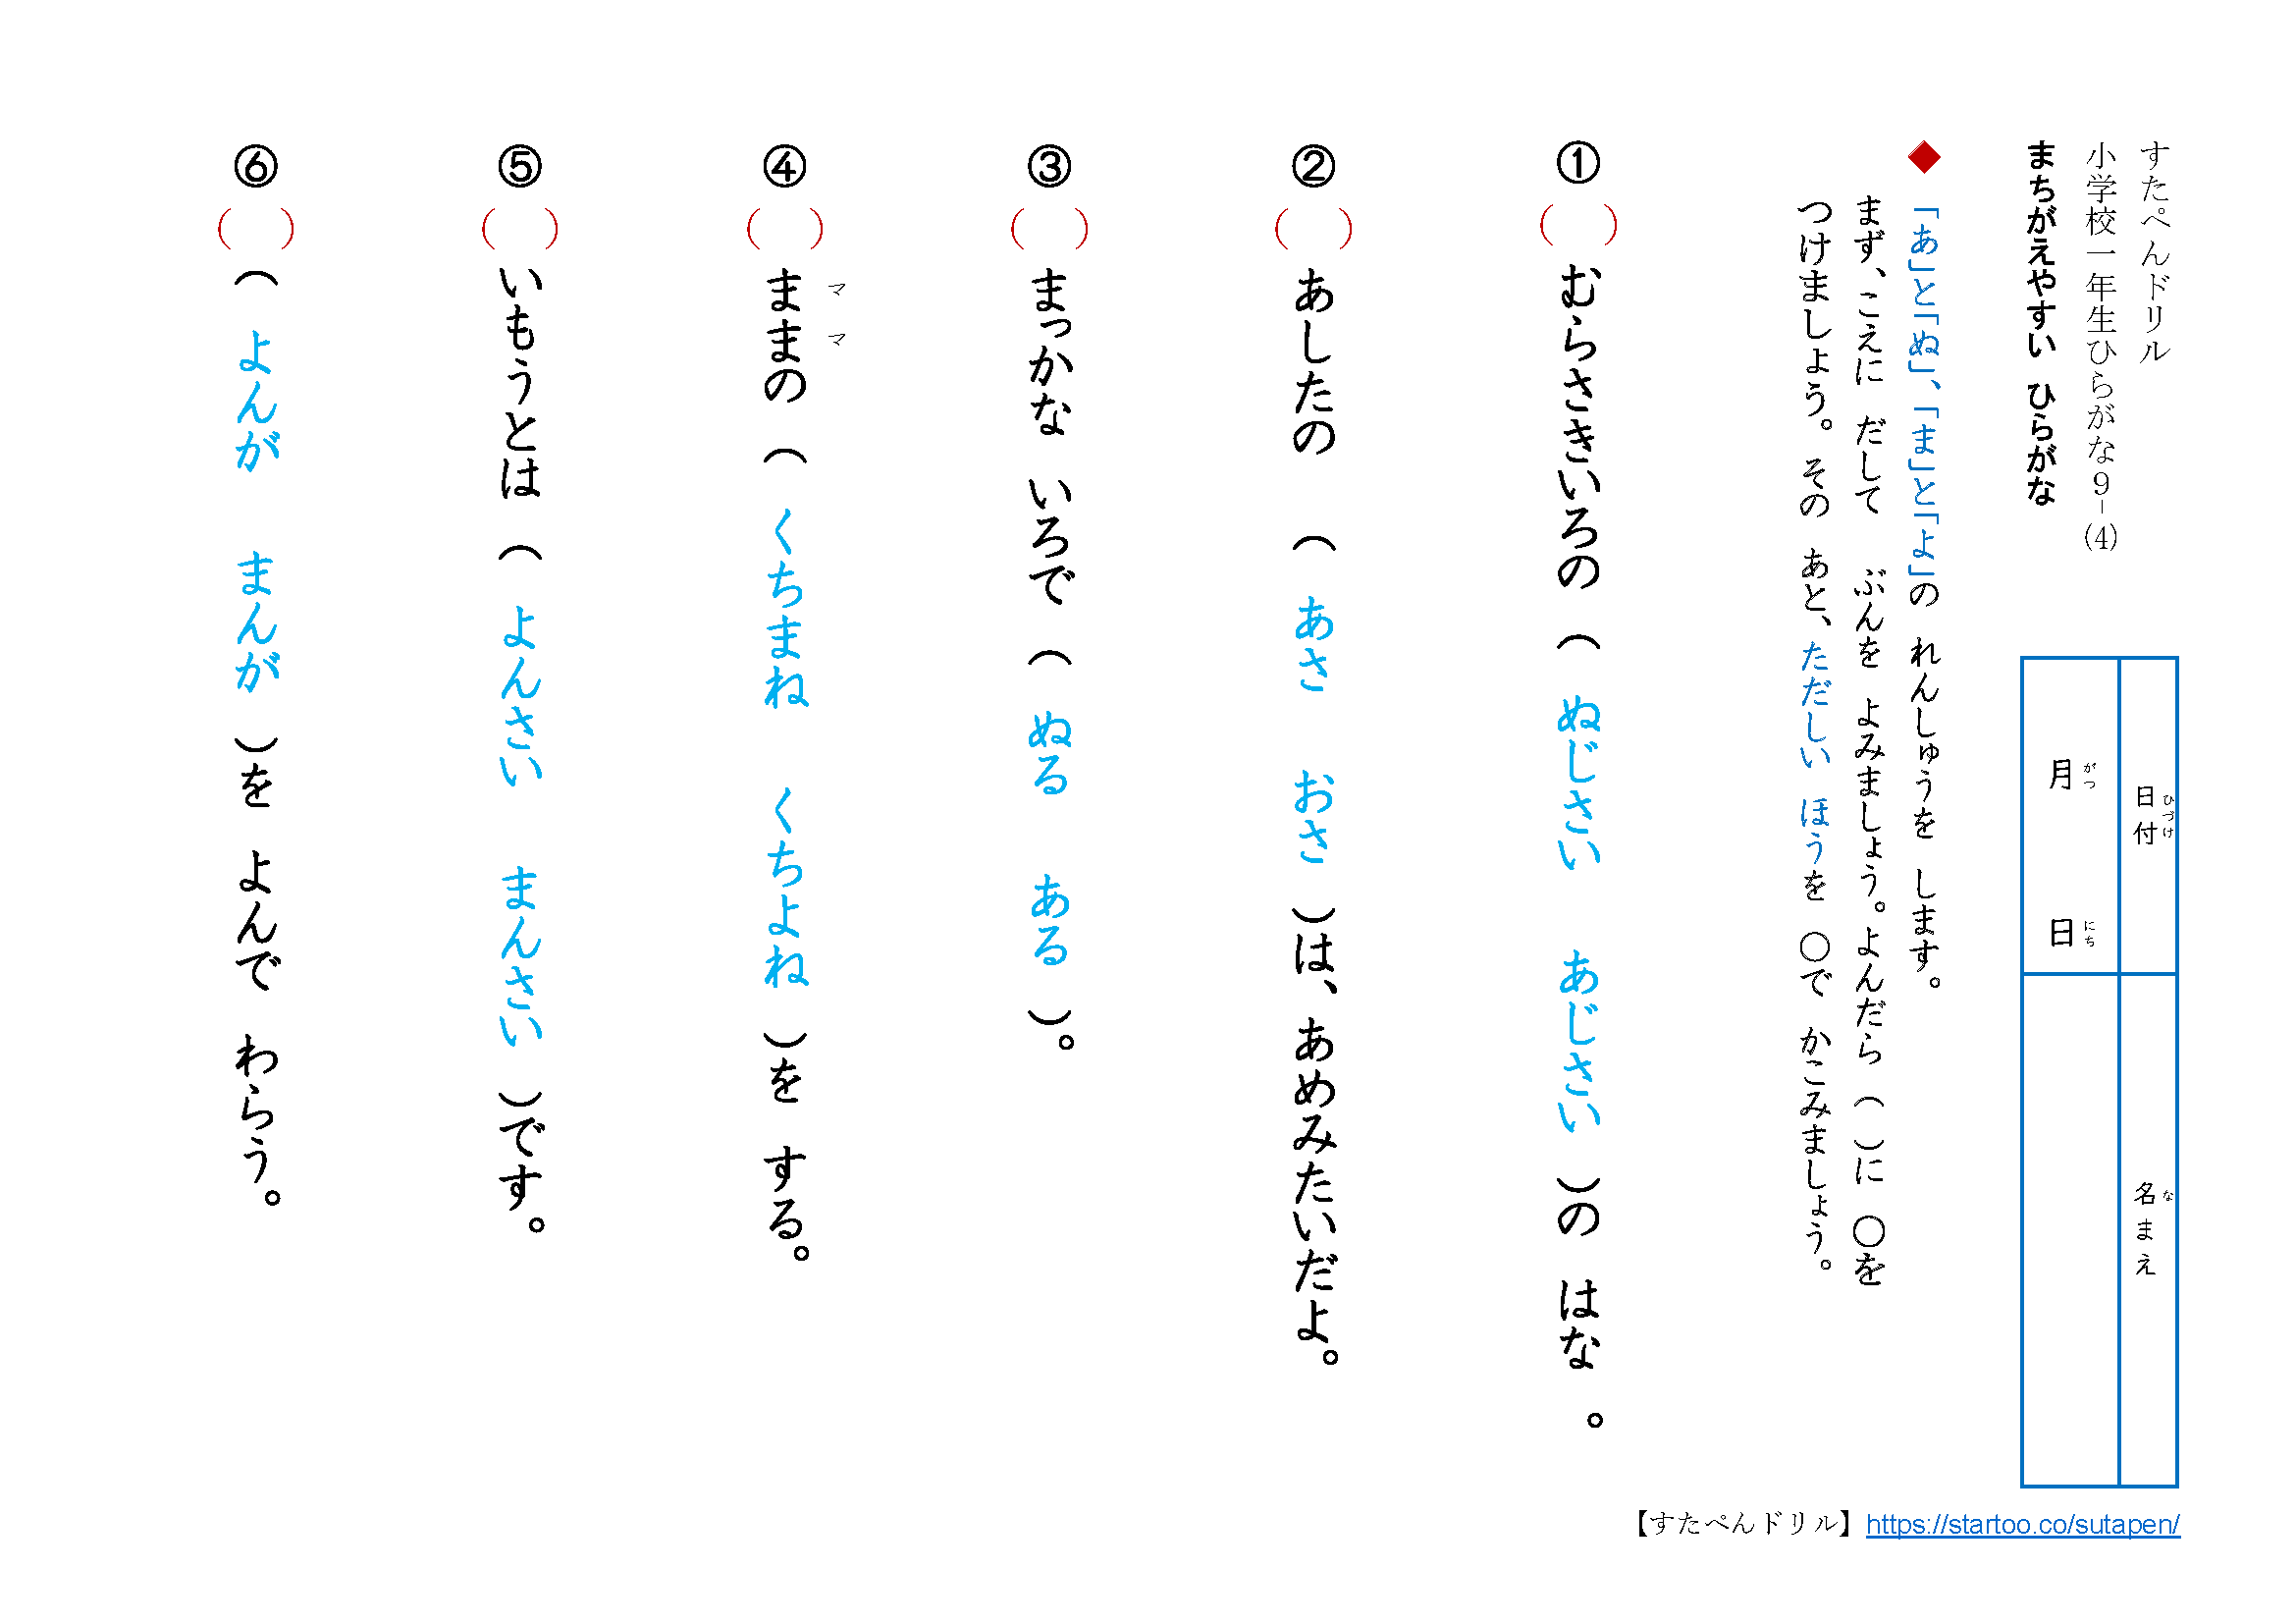 すたぺんドリル
小学校一年生ひらがな９-(4)
まちがえやすい ひらがな
日付 ひづけ
名まえ な
月 がつ 日 にち
◆「あ」と「ぬ」、「ま」と「よ」の れんしゅうを します。
まず、こえに だして ぶんを よみましょう。よんだら（ ）に ○を
つけましょう。その あと、ただしい ほうを ○で かこみましょう。
①（ ）むらさきいろの（ ぬじさい あじさい ）の はな 。
②（ ）あしたの （ あさ おさ ）は、あめみたいだよ。
③（ ）まっかな いろで（ ぬる ある ）。
④（ ）ままの（ くちまね くちよね ）を する。
ママ
⑤（ ）いもうとは（ よんさい まんさい ）です。
⑥（ ）（ よんが まんが ）を よんで わらう。
【すたぺんドリル】https://startoo.co/sutapen/